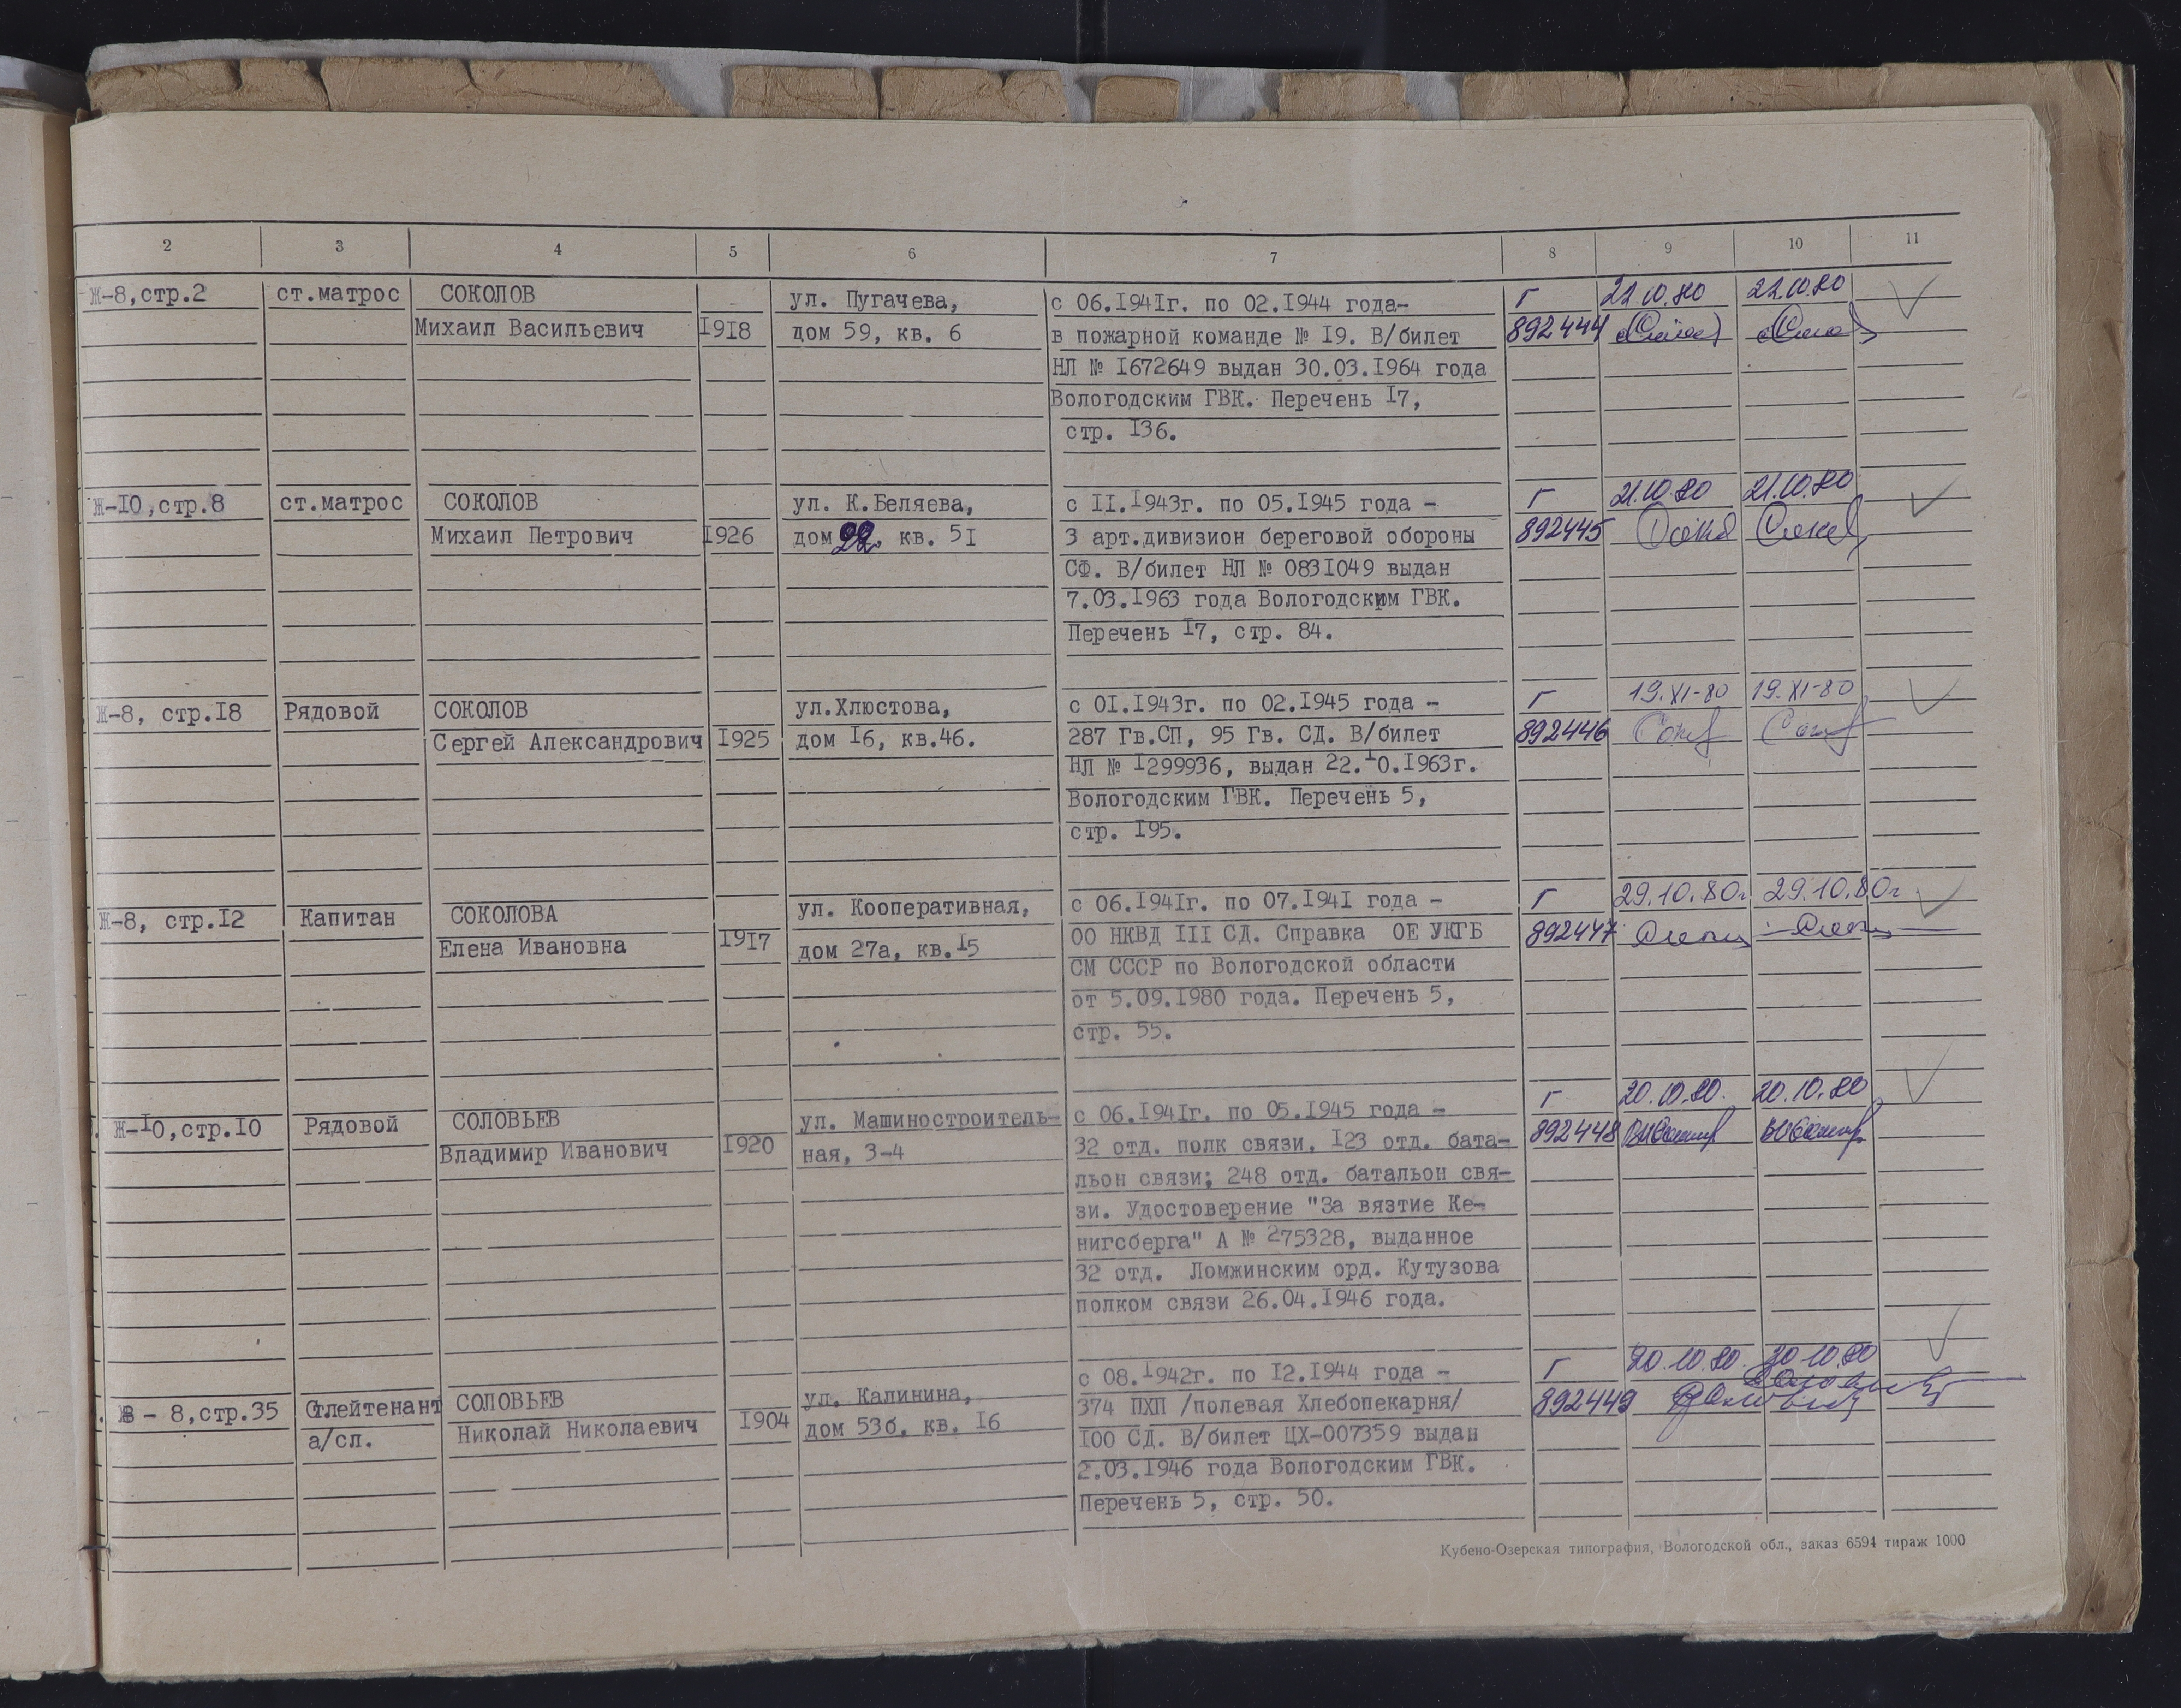 2 3 4 5 6 7 8 9 10 11
Ж-8,стр.2 ст.матрос СОКОЛОВ ул. Пугачева, с 06.1941г. по 02.1944 года- Г 22.10.80 22.10.80
Михаил Васильевич 1918 дом 59, кв. 6 в пожарной команде № 19. В/билет 892444
НЛ № 1672649 выдан 30.03.1964 года
Вологодским ГВК. Перечень 17,
стр. 136.
Ж-10,стр.8 ст.матрос СОКОЛОВ ул. К.Беляева, с 11.1943г. по 05.1945 года - Г 21.10.80 21.10.80
Михаил Петрович 1926 дом 22, кв. 51 3 арт.дивизион береговой обороны 892445
СФ. В/билет НЛ № 0831049 выдан
7.03.1963 года Вологодским ГВК.
Перечень 17, стр. 84.
Ж-8, стр.18 Рядовой СОКОЛОВ ул.Хлюстова, с 01.1943г. по 02.1945 года - Г 19.XI-80 19.XI-80
Сергей Александрович 1925 дом 16, кв.46. 287 Гв.СП, 95 Гв. СД. В/билет 892446
НЛ № 1299936, выдан 22.10.1963г.
Вологодским ГВК. Перечень 5,
стр. 195.
Ж-8, стр.12 Капитан СОКОЛОВА ул. Кооперативная, с 06.1941г. по 07.1941 года - Г 29.10.80г 29.10.80г
Елена Ивановна 1917 дом 27а, кв.15 ОО НКВД III СД. Справка ОЕ УКГБ 892447
СМ СССР по Вологодской области
от 5.09.1980 года. Перечень 5,
стр. 55.
Ж-10,стр.10 Рядовой СОЛОВЬЕВ ул. Машиностроитель- с 06.1941г. по 05.1945 года - Г 20.10.80. 20.10.80
Владимир Иванович 1920 ная, 3-4 32 отд. полк связи, 123 отд. бата- 892448
льон связи; 248 отд. батальон свя-
зи. Удостоверение "За вязтие Ке-
нигсберга" А № 275328, выданное
32 отд. Ломжинским орд. Кутузова
полком связи 26.04.1946 года.
- 8,стр.35 Стлейтенант СОЛОВЬЕВ ул. Калинина, с 08.1942г. по 12.1944 года - Г 20.10.80. 20.10.80
а/сл. Николай Николаевич 1904 дом 53б, кв. 16 374 ПХП /полевая Хлебопекарня/ 892449
100 СД. В/билет ЦХ-007359 выдан
2.03.1946 года Вологодским ГВК.
Перечень 5, стр. 50.
Кубено-Озерская типография, Вологодской обл., заказ 6594 тираж 1000